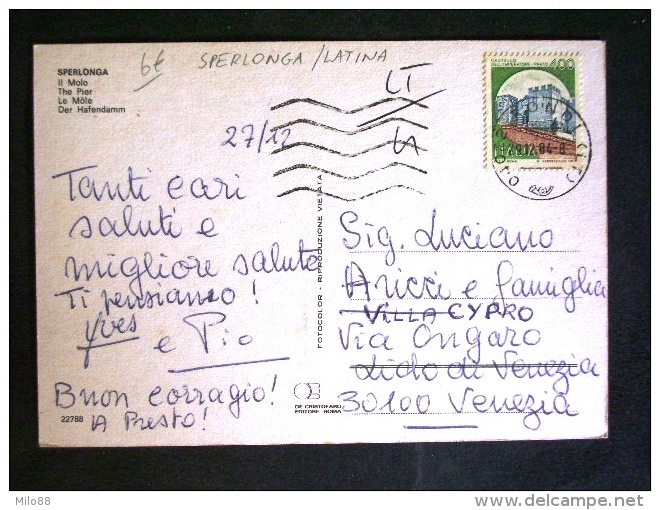 SPERLONGA
Il Molo
The Pier
Le Môle
Der Hafendamm
6€
SPERLONGA/LATINA
LT
CASTELLO
DELL'IMPERATORE - PRATO 400
ITALIA
ROMA
27/12
Tanti cari
saluti e
migliore saluto
Ti pensiamo!
Yves
e Pio
Buon corragio!
A Presto!
22788
FOTOCOLOR - RIPRODUZIONE VIETATA
DE CRISTOFARO
EDITORE ROMA
Sig. Luciano
Aricci e famiglia
VILLA CYPRO
Via Ongaro
Lido di Venezia
30100 Venezia
Milo88
delcampe.net